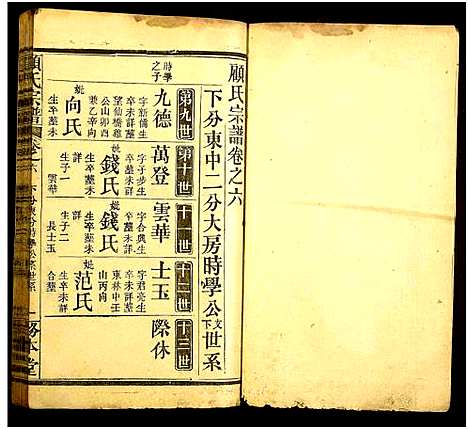 顧氏宗譜卷之六
下分東中二分大房時學公文下世系
第九世
第十世
十一世
十二世
十三世
時學之子
九德
字新儒生
卒葬未詳
望仙橋雞
公山卯酉
兼乙辛向
妣向氏
生卒葬未
詳
生子一
萬登
字子步生
卒葬未詳
妣錢氏
生卒葬未
詳
生子一
雲華
雲華
字合興生
卒葬未詳
妣錢氏
生卒葬未
詳
生子二
長士玉
士玉
字君亮生
卒未詳葬
東林中
山丙向
妣范氏
生卒未詳
合葬
際休
顧氏宗譜
卷之六
務本堂